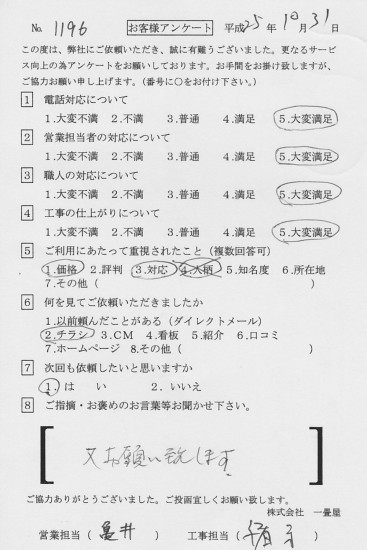 No. 1196 お客様アンケート 平成25年10月31日
この度は、弊社にご依頼いただき、誠に有難うございました。更なるサービ
ス向上の為アンケートをお願いしております。お手間をお掛け致しますが、
ご協力お願い申し上げます。（番号に○をお付け下さい。）
1 電話対応について
1.大変不満 2.不満 3.普通 4.満足 5.大変満足
2 営業担当者の対応について
1.大変不満 2.不満 3.普通 4.満足 5.大変満足
3 職人の対応について
1.大変不満 2.不満 3.普通 4.満足 5.大変満足
4 工事の仕上がりについて
1.大変不満 2.不満 3.普通 4.満足 5.大変満足
5 ご利用にあたって重視されたこと（複数回答可）
1.価格 2.評判 3.対応 4.人柄 5.知名度 6.所在地
7.その他（ ）
6 何を見てご依頼いただきましたか
1.以前頼んだことがある（ダイレクトメール）
2.チラシ 3.CM 4.看板 5.紹介 6.口コミ
7.ホームページ 8.その他（ ）
7 次回も依頼したいと思いますか
1. は い 2. いいえ
8 ご指摘・お褒めのお言葉等お聞かせ下さい。
又お願い致します
ご協力ありがとうございました。ご投函宜しくお願い致します。
株式会社 一畳屋
営業担当（ 亀井 ） 工事担当（ ）